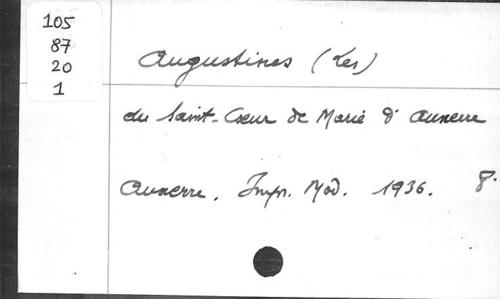 105
87
20
1
Augustines (Les)
du Saint-Cœur de Marie d'Auxerre
Auxerre. Impr. Mod. 1936. 8°.